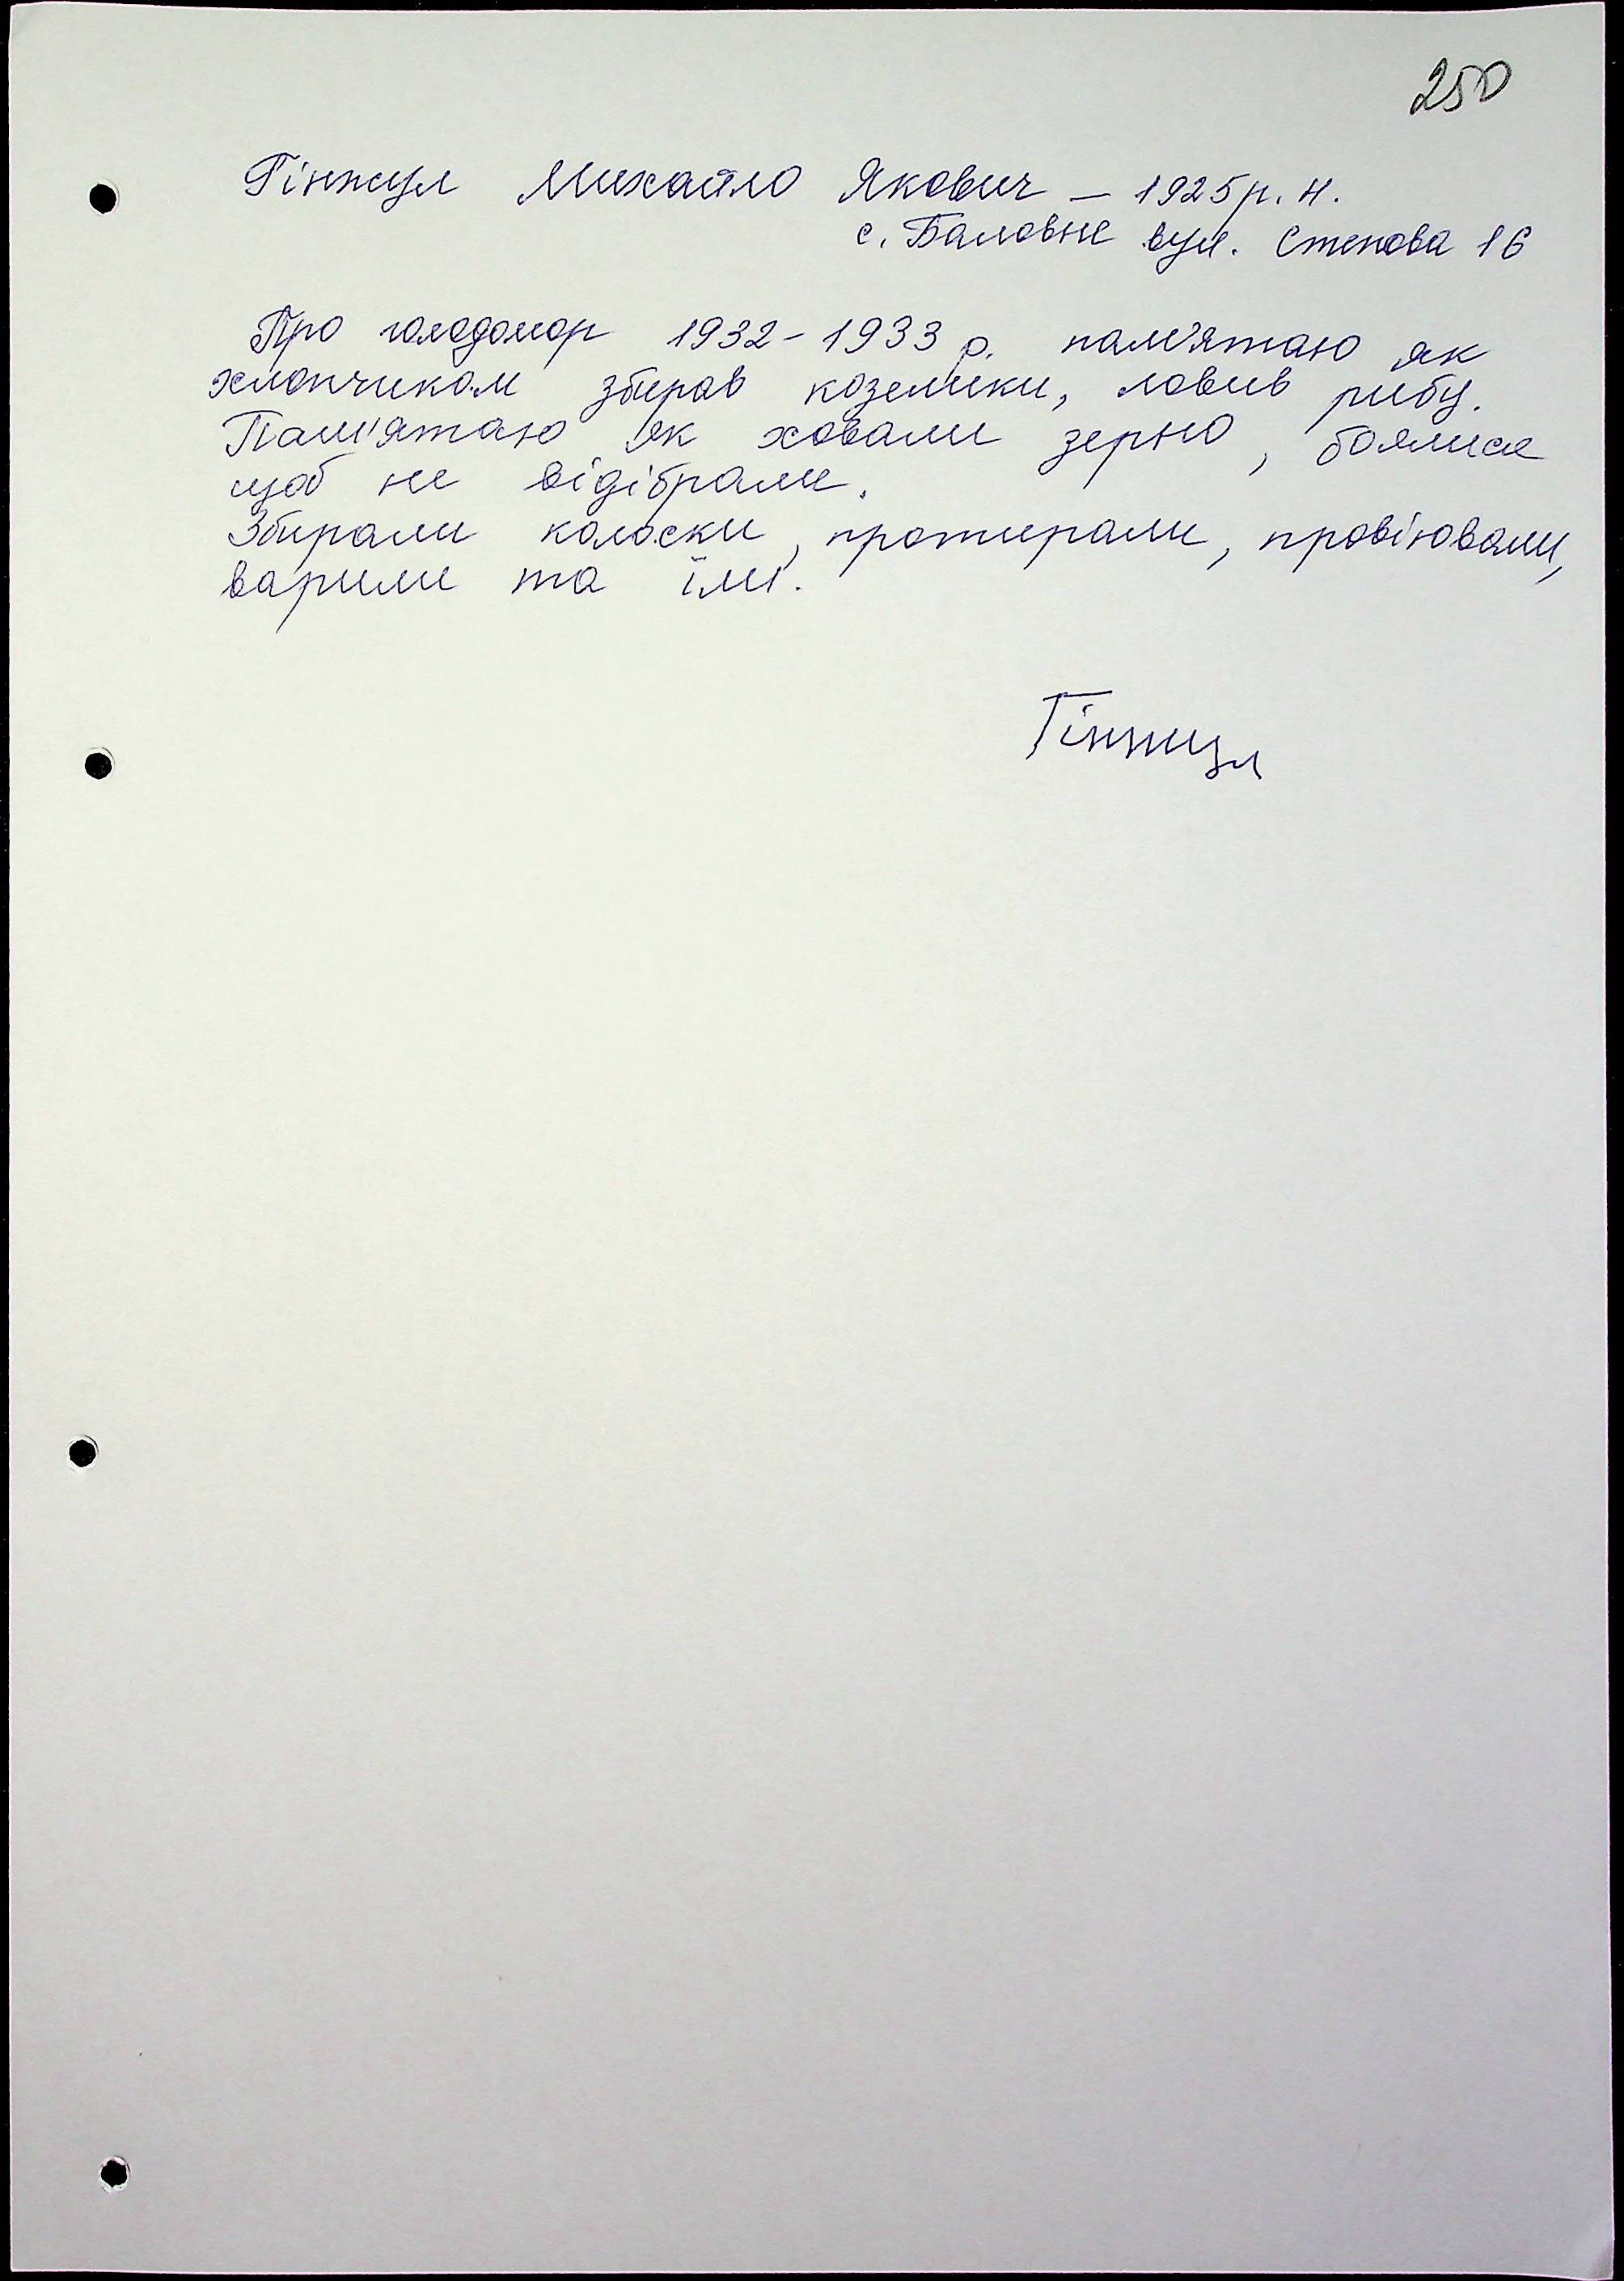 250
Гінжул Михайло Якович – 1925 р. н.
с. Баловне вул. Степова 16
Про голодомор 1932-1933 р. пам'ятаю як
хлопчиком збирав козелики, ловив рибу.
Пам'ятаю як ховали зерно, боялися
щоб не відібрали.
Збирали колоски, протирали, провіювали,
варили та їли.
Гінжул